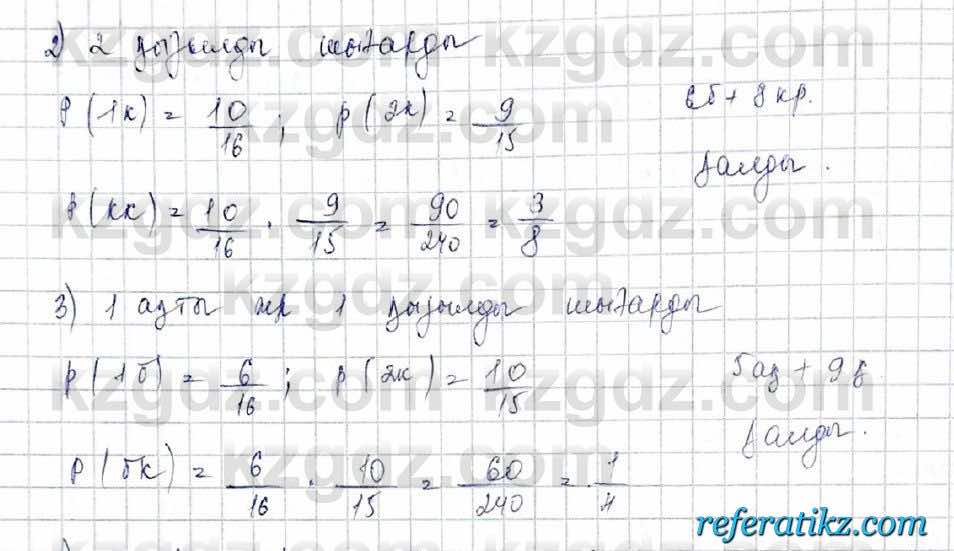 2) 2 қызылды шығарды
P(1к) = 10/16 ; p(2к) = 9/15
6б + 8 кр.
қалды.
P(кк) = 10/16 · 9/15 = 90/240 = 3/8
3) 1 ақты жр 1 қызылды шығарды
p(1б) = 6/16 ; p(2к) = 10/15
5ақ + 9қ
қалды.
p(бк) = 6/16 · 10/15 = 60/240 = 1/4
kzgdz.com
referatikz.com